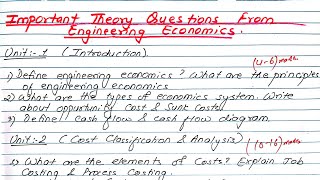 Important Theory Questions From
Engineering Economics.
Unit:-1 (Introduction).
(4-6) marks
1) Define engineering economics? What are the principles
of engineering economics
2) What are the types of economics system. Write
about opportunity cost & Sunk Costs
3) Define cash flow & cash flow diagram.
Unit:-2 (Cost Classification & Analysis)
(8-16) marks
1) What are the elements of Costs? Explain Job
Costing & Process Costing.